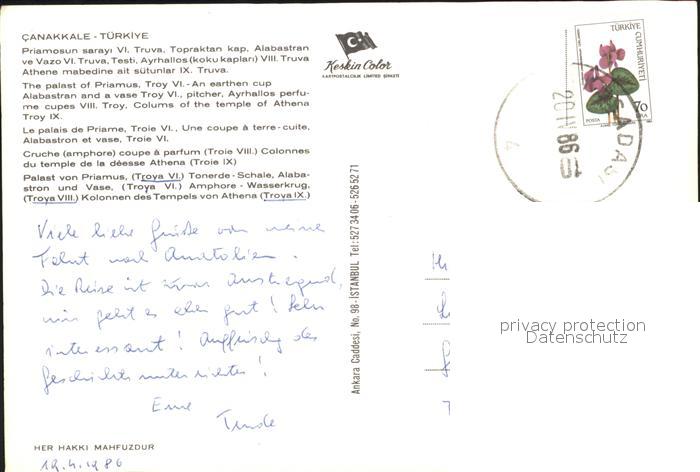 ÇANAKKALE - TÜRKİYE
Priamosun sarayı VI. Truva, Topraktan kap, Alabastran
ve Vazo VI. Truva, Testi, Ayrhallos (koku kapları) VIII. Truva
Athene mabedine ait sütunlar IX. Truva.
The palast of Priamus, Troy VI. - An earthen cup
Alabastran and a vase Troy VI., pitcher, Ayrhallos perfu-
me cupes VIII. Troy, Colums of the temple of Athena
Troy IX.
Le palais de Priame, Troie VI., Une coupe à terre-cuite,
Alabastron et vase, Troie VI.
Cruche (amphore) coupe à parfum (Troie VIII.) Colonnes
du temple de la déesse Athena (Troie IX)
Palast von Priamus, (Troya VI.) Tonerde-Schale, Alaba-
stron und Vase, (Troya VI.) Amphore - Wasserkrug,
(Troya VIII.) Kolonnen des Tempels von Athena (Troya IX.)
Keskin Color
KARTPOSTALCILIK LIMITED ŞİRKETİ
TÜRKİYE
CUMHURİYETİ
70
LİRA
POSTA
20 IV 86
Ankara Caddesi, No. 98 - İSTANBUL Tel: 527 34 06 - 526 52 71
Viele liebe Grüße von meiner
Fahrt nach Anatolien.
Die Reise ist zwar anstrengend,
mir geht es aber gut! Sehr
interessant! Auffrischg des
Geschichtsunterrichtes!
Eure
HER HAKKI MAHFUZDUR
19.4.1986
privacy protection
Datenschutz